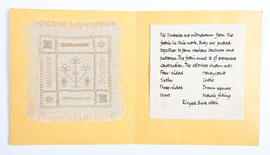 No threads are withdrawn from the
fabric in this work. They are pulled
together to form various textures and
patterns. The fabric must be of evenweave
construction. The stitches shown are:
Four-sided Honeycomb
Satin Cable
Three-sided Drawn square
Wave Mosaic filling
Ringed Back stitch